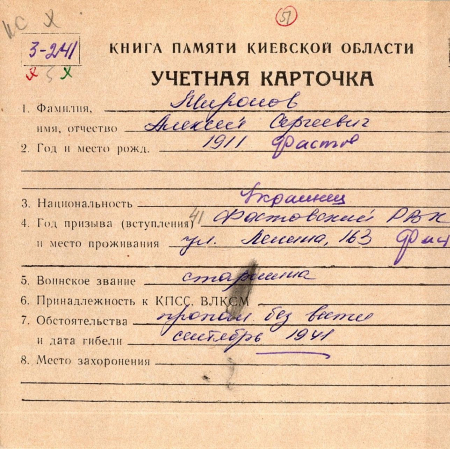 ИС X
51
3-241
х 5 х
КНИГА ПАМЯТИ КИЕВСКОЙ ОБЛАСТИ
УЧЕТНАЯ КАРТОЧКА
1. Фамилия, Миронов
имя, отчество Алексей Сергеевич
2. Год и место рожд. 1911 Фастов
3. Национальность Украинец
4. Год призыва (вступления) 41 Фастовский РВК
и место проживания ул. Ленина, 163 Фаст
5. Воинское звание старшина
6. Принадлежность к КПСС, ВЛКСМ
7. Обстоятельства пропал без вести
и дата гибели сентябрь 1941
8. Место захоронения